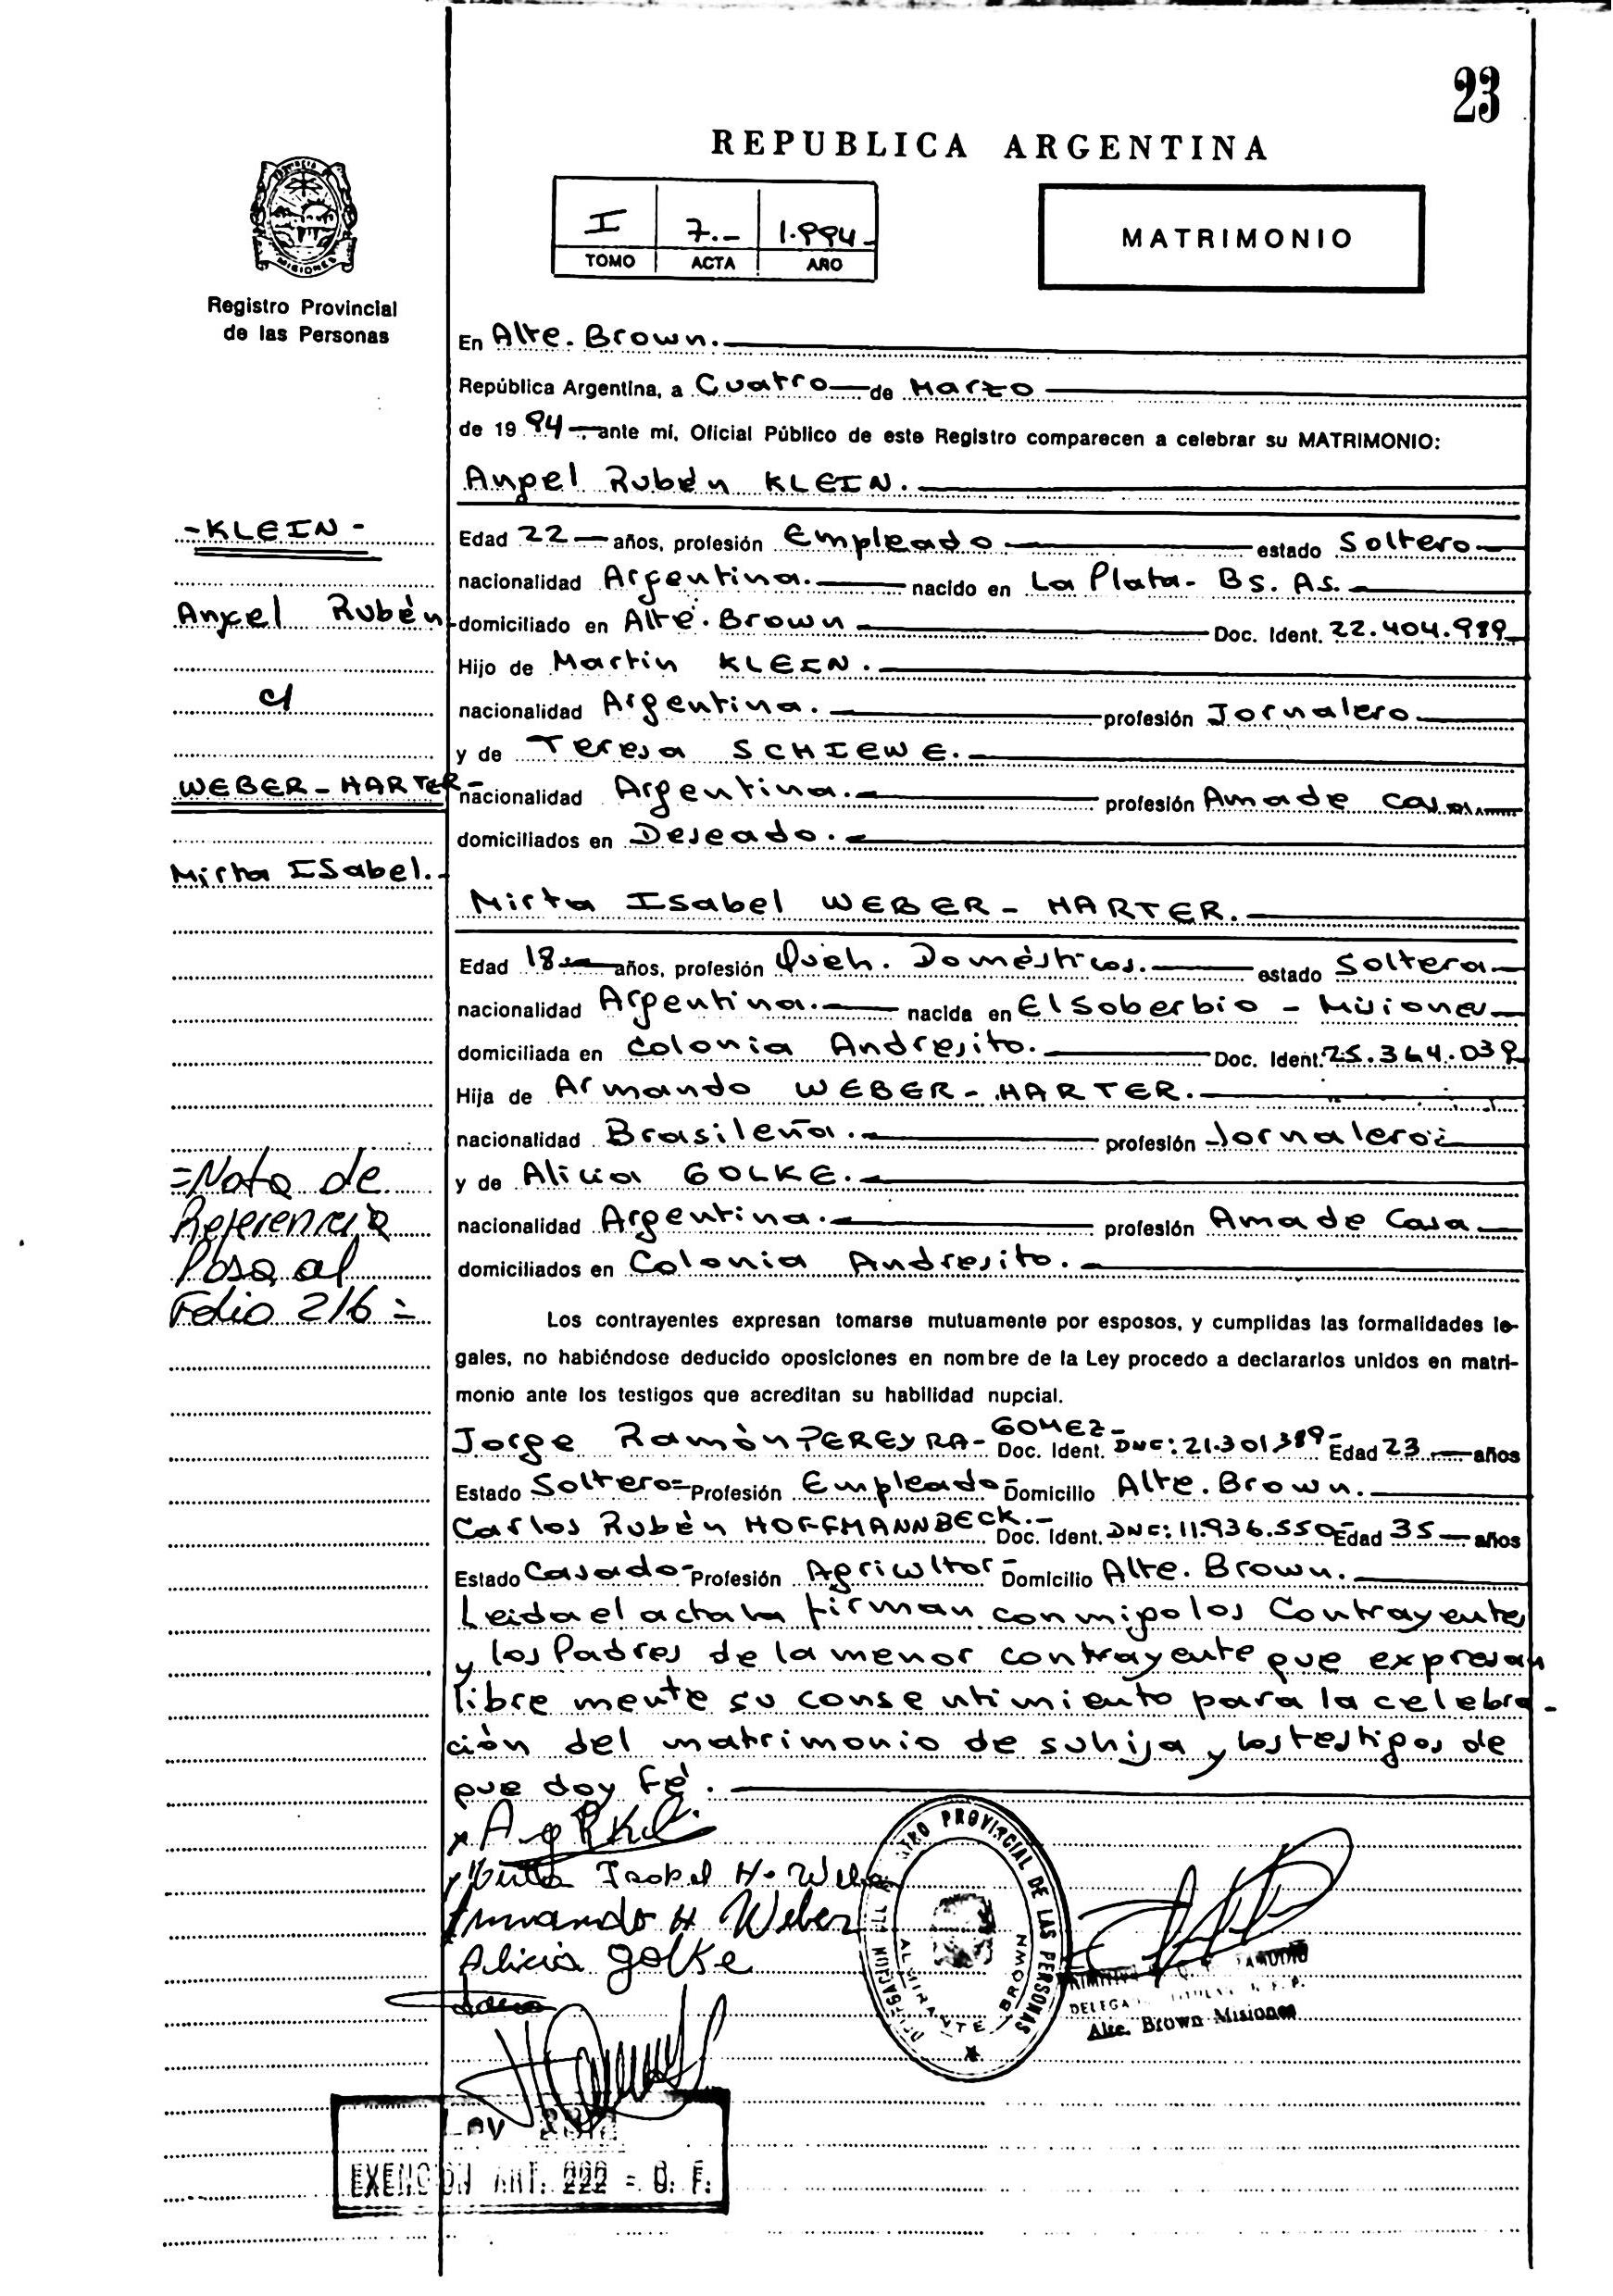 23
REPUBLICA ARGENTINA
I 7.- 1.994-
TOMO ACTA AÑO
MATRIMONIO
MISIONES
Registro Provincial
de las Personas
En Alte. Brown.
República Argentina, a Cuatro de Marzo
de 1994, ante mí, Oficial Público de este Registro comparecen a celebrar su MATRIMONIO:
Angel Rubén KLEIN.
-KLEIN-
Edad 22 años, profesión Empleado estado Soltero
nacionalidad Argentina. nacido en La Plata- Bs. As.
Angel Rubén
domiciliado en Alte. Brown Doc. Ident. 22.404.989
Hijo de Martin KLEIN.
c/
nacionalidad Argentina. profesión Jornalero
y de Teresa SCHIEWE.
WEBER-HARTER-
nacionalidad Argentina. profesión Ama de casa.
domiciliados en Deseado.
Mirta Isabel.-
Mirta Isabel WEBER - HARTER.
Edad 18 años, profesión Queh. Domésticos. estado Soltera
nacionalidad Argentina. nacida en El Soberbio - Misiones
domiciliada en Colonia Andresito. Doc. Ident. 25.364.039
Hija de Armando WEBER - HARTER.
nacionalidad Brasileña. profesión Jornalero
y de Alicia GOLKE.
nacionalidad Argentina. profesión Ama de Casa
domiciliados en Colonia Andresito.
=Nota de
Referencia
Pasa al
Folio 216=
Los contrayentes expresan tomarse mutuamente por esposos, y cumplidas las formalidades le-
gales, no habiéndose deducido oposiciones en nombre de la Ley procedo a declararlos unidos en matri-
monio ante los testigos que acreditan su habilidad nupcial.
Jorge Ramón PEREYRA-GOMEZ- Doc. Ident. DNI: 21.301.389- Edad 23 años
Estado Soltero- Profesión Empleado- Domicilio Alte. Brown.
Carlos Rubén HOFFMANNBECK.- Doc. Ident. DNI: 11.936.550 Edad 35 años
Estado Casado- Profesión Agricultor- Domicilio Alte. Brown.
Leida el acta la firman conmigo los Contrayentes
y los Padres de la menor contrayente que expresan
libremente su consentimiento para la celebra-
ción del matrimonio de su hija y los testigos de
que doy fé.
Isabel H. Weber
Armando H Weber
Alicia golke
DELEGACION REGISTRO PROVINCIAL DE LAS PERSONAS
ALMIRANTE BROWN
Alte. Brown Misiones
EXENCION ART. 222 - C. F.